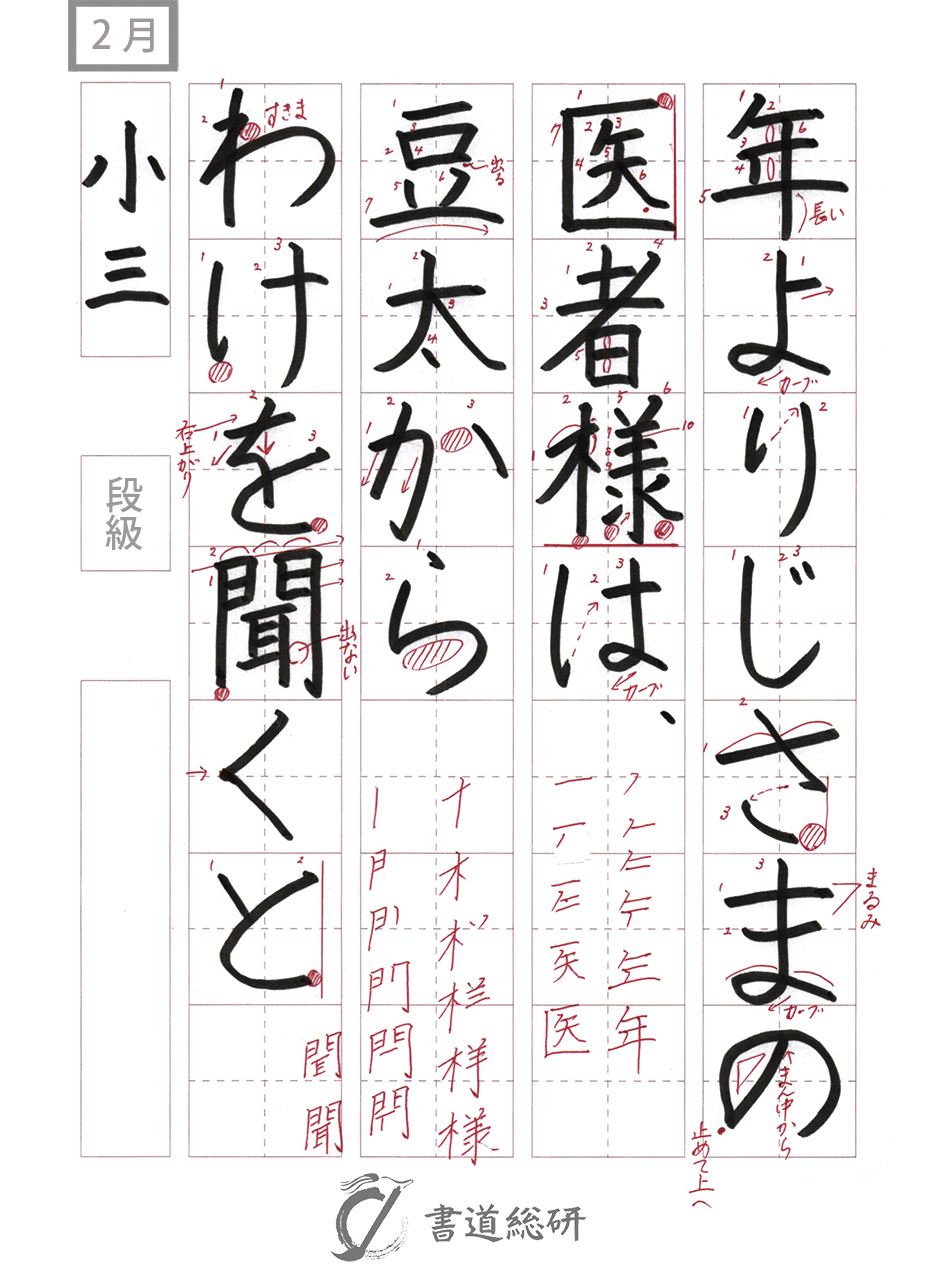 2月
年よりじさまの
医者様は、
豆太から
わけを聞くと
小三
段級
長い
カーブ
まるみ
カーブ
まん中から
止めて上へ
カーブ
出る
すきま
右上がり
出ない
年
医
様
聞
聞
書道総研